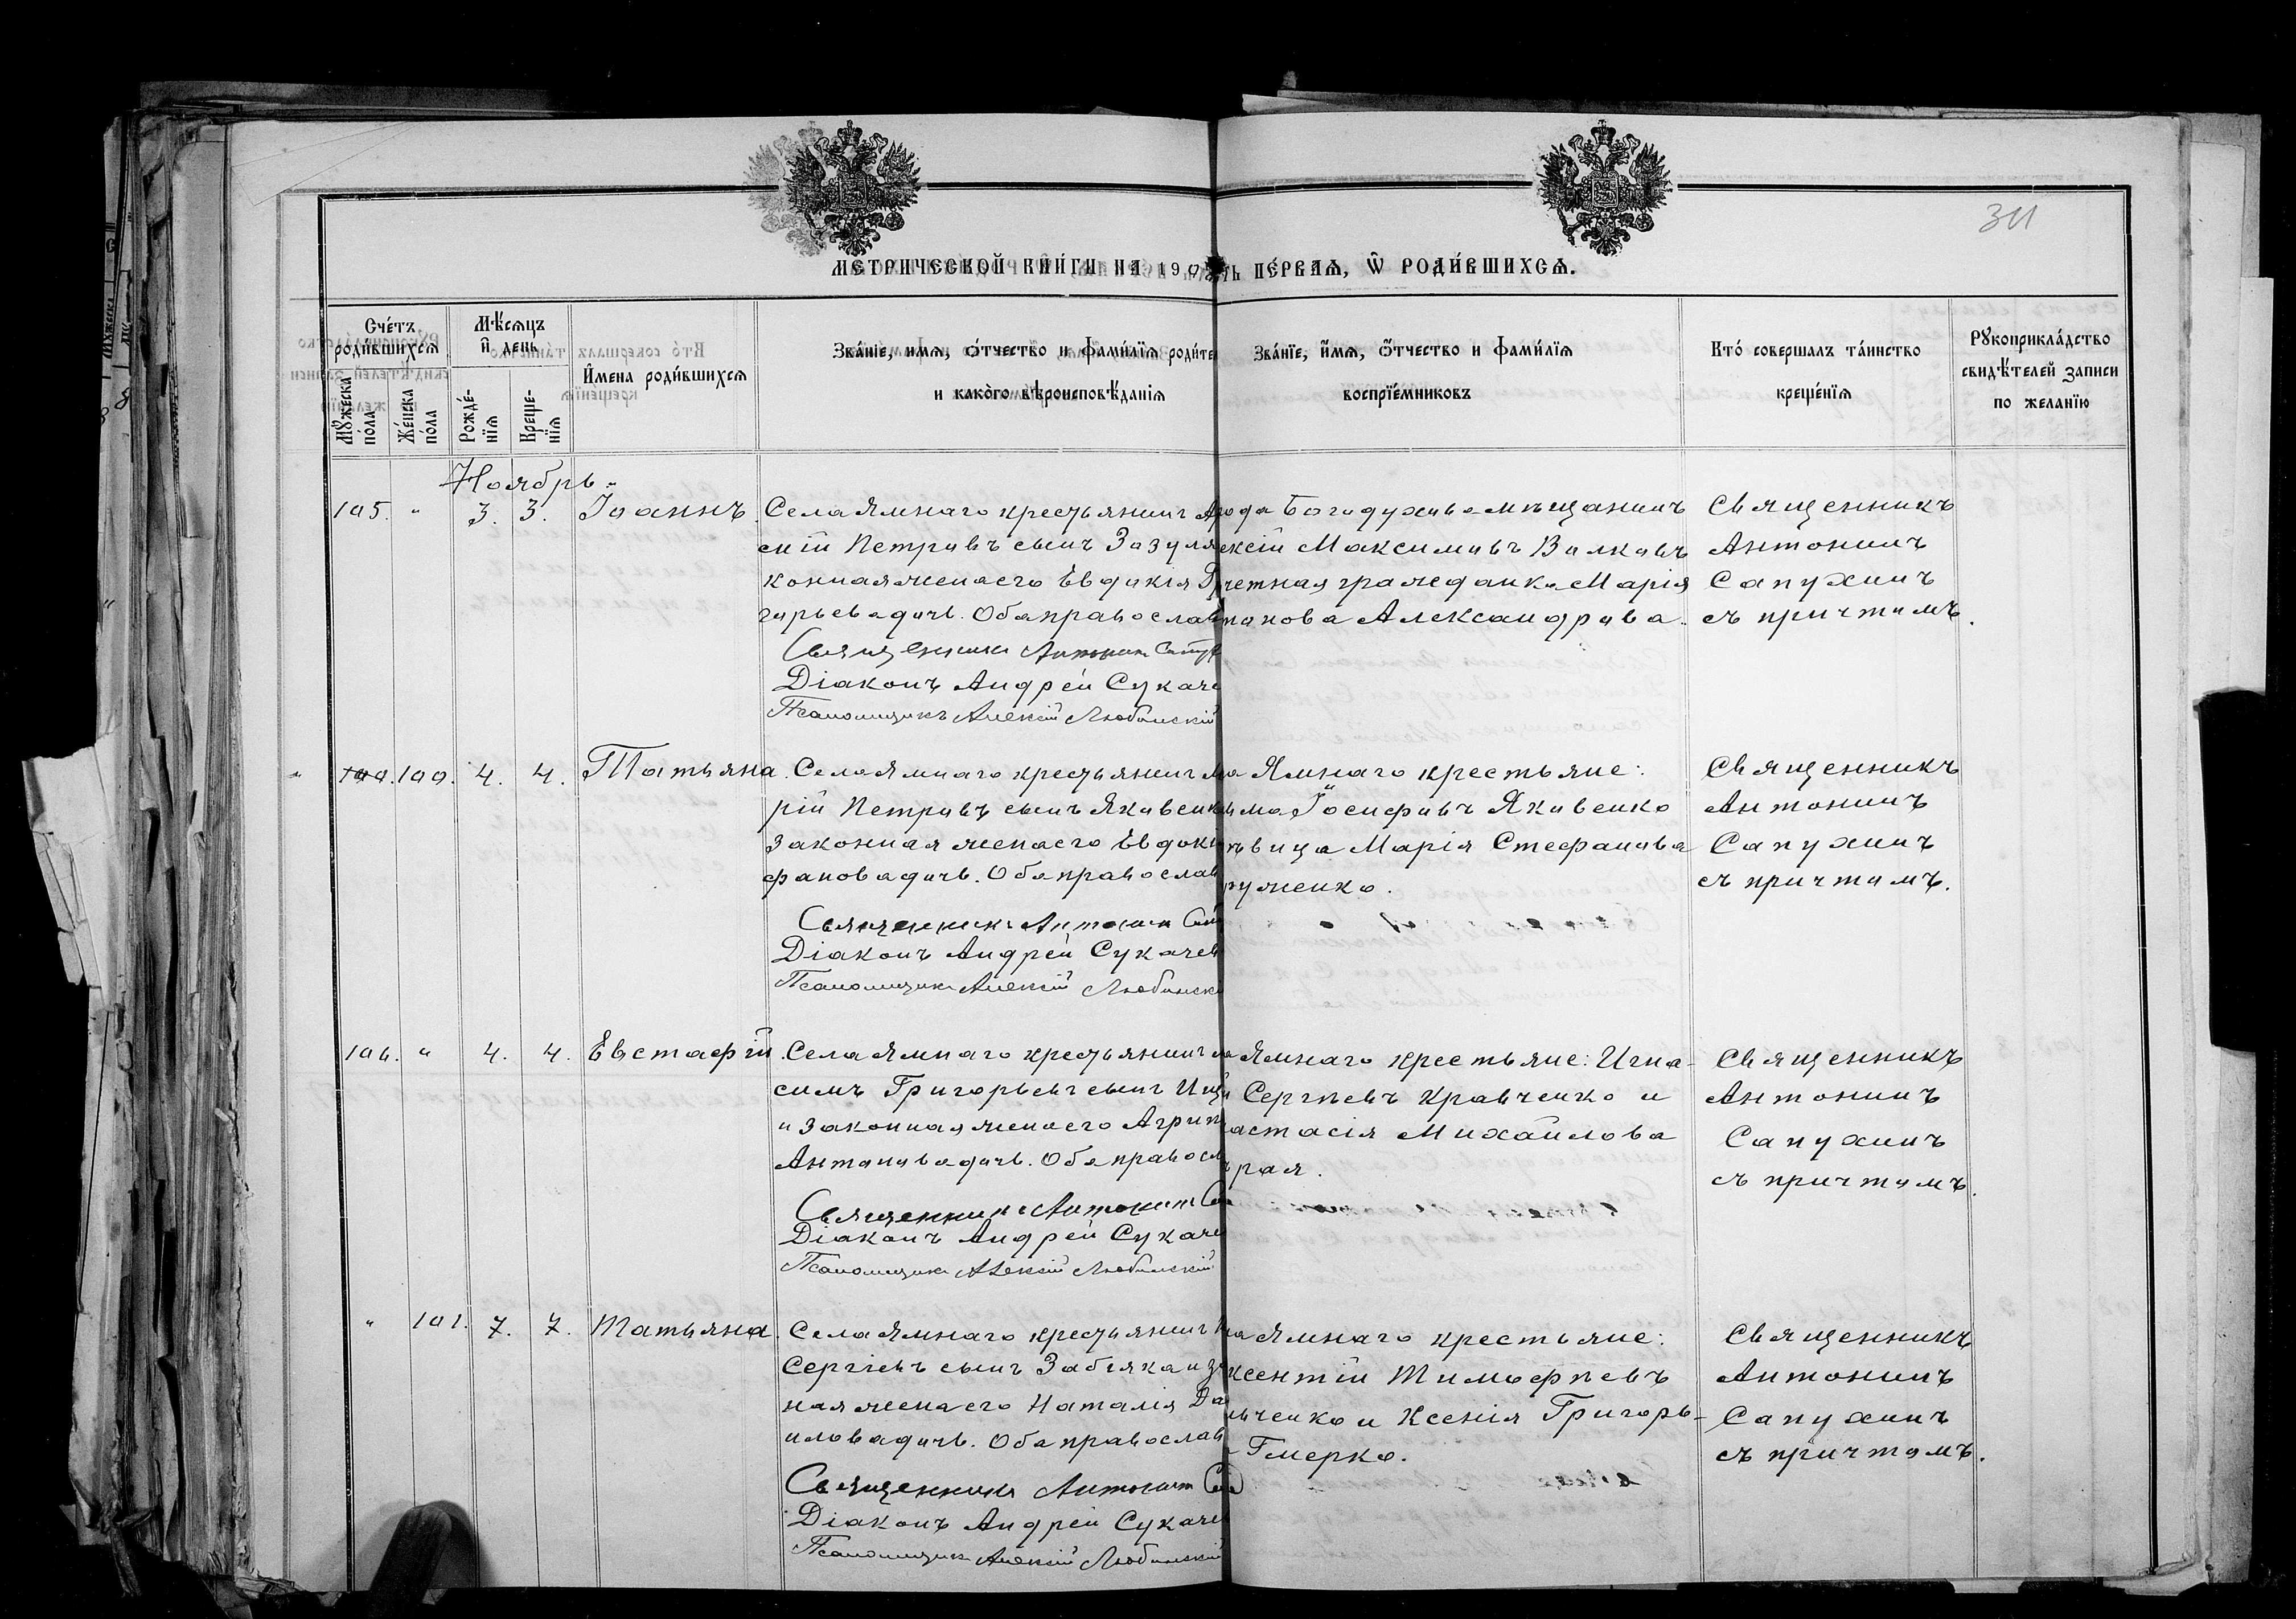 311
МЕТРИЧЕСКОЙ КНИ́ГИ НА 190
ПЕ́РВАѦ, Ѿ РОДИ́ВШИХСѦ.
Сче́тъ роди́вшихсѧ
Мꙋ́жеска по́ла
Же́нска по́ла
Мѣ́сѧцъ и҆ день
Рожде́нїѧ
Креще́нїѧ
И҆мена роди́вшихсѧ
Зва́нїе, имѧ, о́тчество и фами́лїѧ родите
и како́го вѣроисповѣ́данїѧ
Зва́нїе, и́мѧ, о́тчество и фами́лїѧ
воспрїе́мниковъ
Кто́ совершалъ та́инство
креще́нїѧ
Рꙋкоприкла́дство
свидѣ́телей записи
по желанїю
Ноябрь
105. " 3. 3. Іоаннъ.
Села Ямнаго крестьянинъ А
сій Петровъ сынъ Зозуля
конная жена его Евдокія Гр
горьева дочь. Оба православ
Священникъ Антонин Сапу
Діаконъ Андрей Сукаче
Псаломщикъ Алексій Любимскій
рода Богодухова мѣщанинъ
ексій Максимовъ Волковъ
четная гражданка Марія
панова Александрова.
Священникъ
Антонинъ
Сапухинъ
съ причтомъ.
" 100. 4. 4. Татьяна.
Села Ямнаго крестьянинъ
рій Петровъ сынъ Яковенк
законная жена его Евдокі
фанова дочь. Оба православ
Священникъ Антонин Сап
Діаконъ Андрей Сукачев
Псаломщикъ Алексій Любимск
ла Ямнаго крестьяне:
ма Іосифовъ Яковенко
ѣвица Марія Стефанова
руженко.
Священникъ
Антонинъ
Сапухинъ
съ причтомъ.
106. " 4. 4. Евстафій.
Села Ямнаго крестьянинъ
симъ Григорьевъ сынъ Ищ
и законная жена его Агрип
Антонова дочь. Оба правосл
Священникъ Антонинъ Са
Діаконъ Андрей Сукаче
Псаломщикъ Алексій Любимскій
ла Ямнаго крестьяне: Игна-
й Сергѣевъ Кравченко и
астасія Михайлова
рая.
Священникъ
Антонинъ
Сапухинъ
съ причтомъ.
" 101. 7. 7. Татьяна.
Села Ямнаго крестьянинъ
Сергіевъ сынъ Забіяка и за
ная жена его Наталія Да
илова дочь. Оба православ
Священникъ Антонинъ Са
Діаконъ Андрей Сукаче
Псаломщикъ Алексій Любимскій
ла Ямнаго крестьяне:
ксентій Тимофѣевъ
ьченко и Ксенія Григорь-
Гмерко.
Священникъ
Антонинъ
Сапухинъ
съ причтомъ.